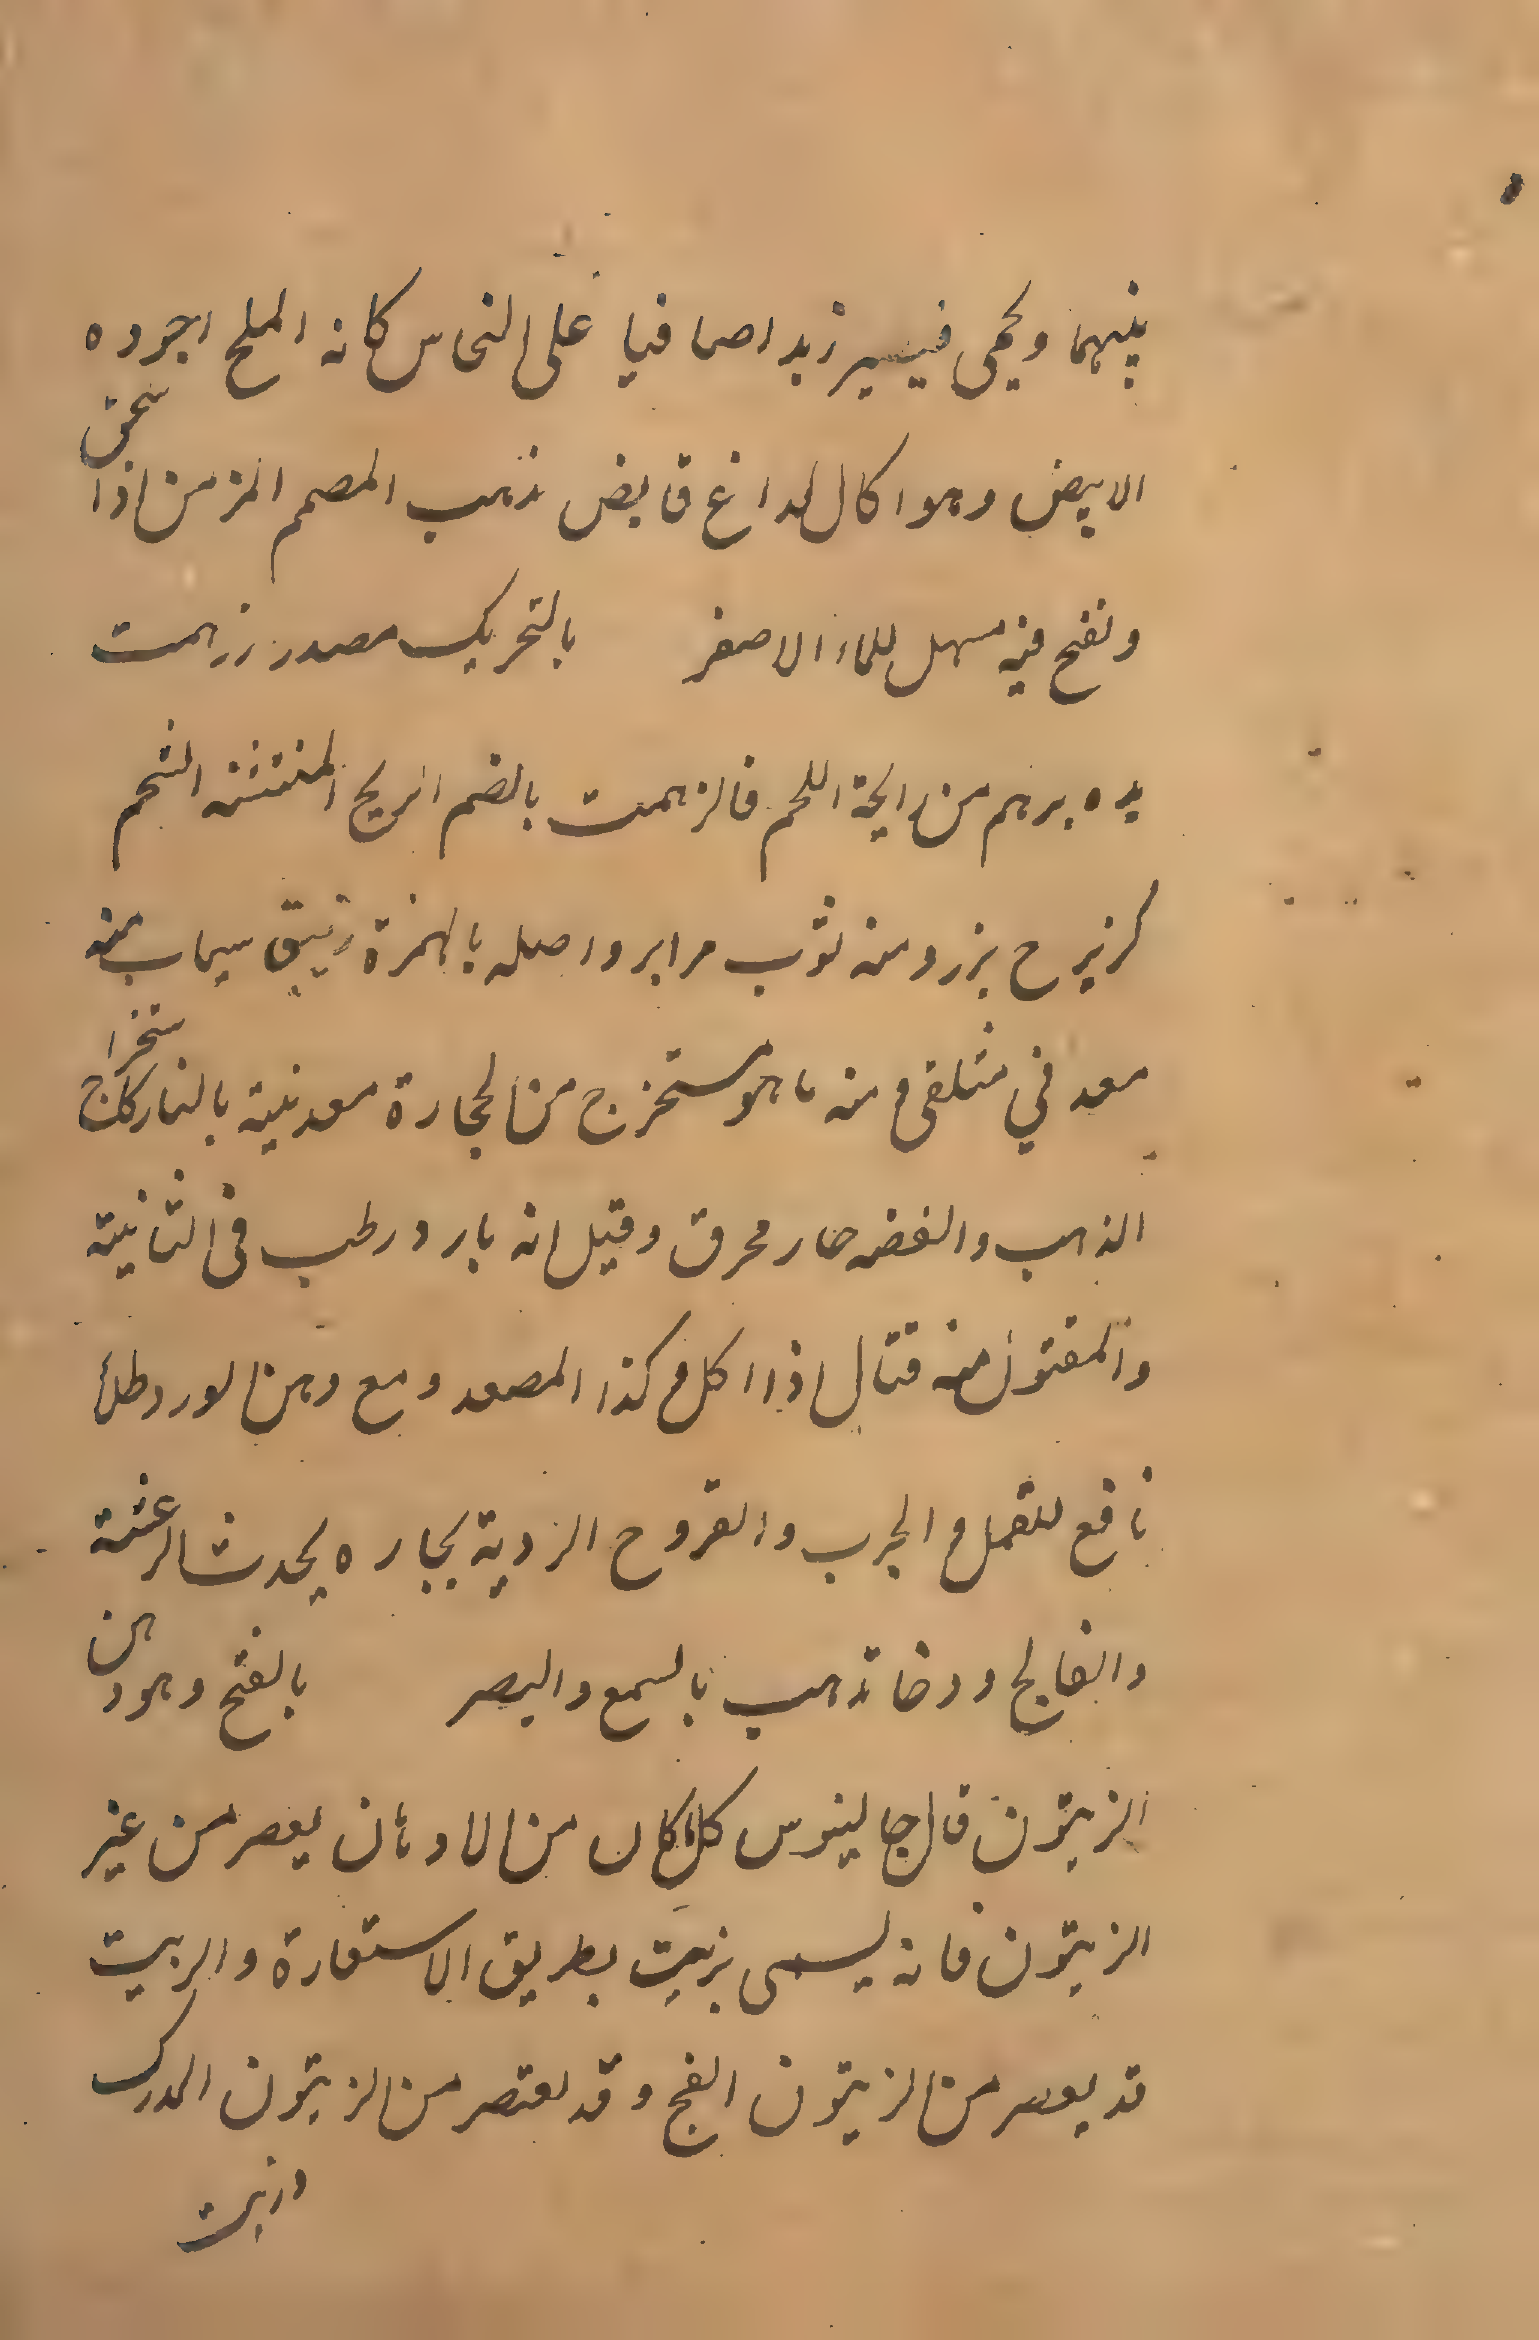 بينهما ويحمى فيسير زبدا صافيا على النحاس كانه الملح اجوده
الابيض وهو اكال لداغ قابض يذهب المصمم المزمن اذا سحق
ونفخ فيه مسهل للماء الاصفر بالتحريك مصدر زهمت
يده يزهم من رايحة اللحم فالزهمت بالضم الريح المنتنه الشحم
كزبرح بزر ومنه ثوب مرابر واصله بالهمزة زيبق سيماب منه
معدني مثلقى ومنه ما هو مستخرج من الحجارة معدنية بالنار كاستخراج
الذهب والفضه حار محرق وقيل انه بارد رطب فى الثانية
والمقتول منه قتال اذا اكل وكذا المصعد ومع دهن الورد طلاء
نافع للقمل والجرب والقروح الردية بخاره يحدث الرعشة
والفالج ودخانه يذهب بالسمع والبصر بالفتح وهو دهن
الزيتون قال جالينوس كل ما كان من الادهان يعصر من غير
الزيتون فانه يسمى بزيت بطريق الاستعارة والزيت
قد يعصر من الزيتون الفج وقد يعتصر من الزيتون المدرك
وزيت